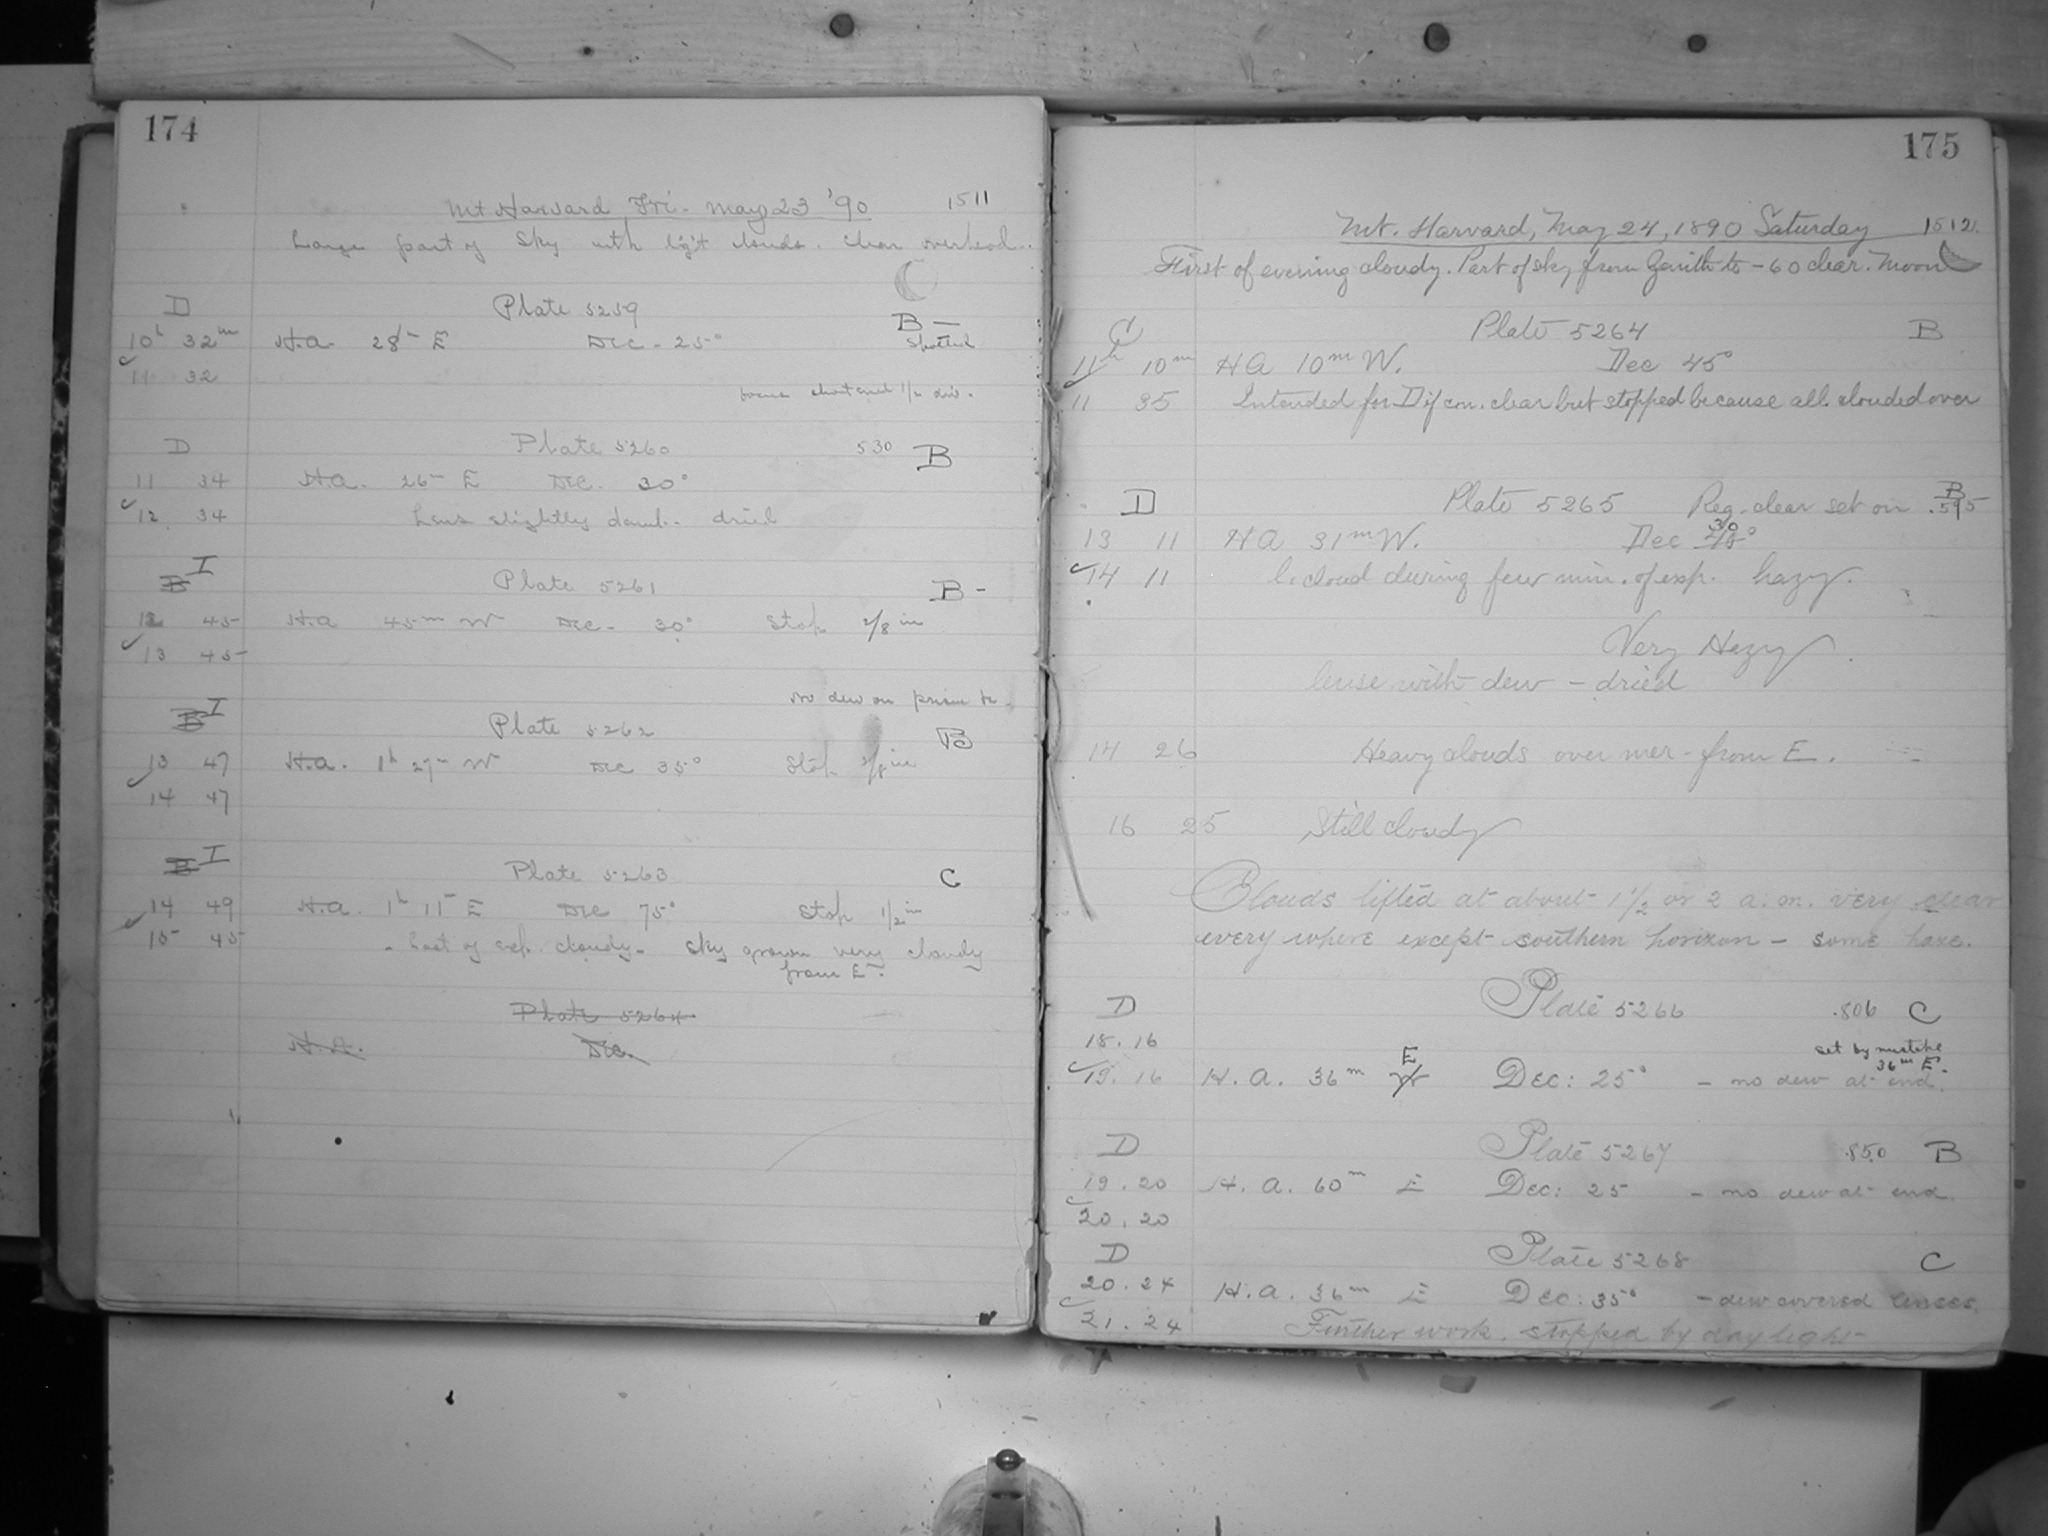 174
Mt Harvard Fri - May 23 '90 1511
Large part of sky with lig't clouds. Clear overhead.
D Plate 5259 B -
10h 32m H.A. 28m E Dec - 25° Spotted
11 32
focus shortened 1/2 div.
D Plate 5260 530 B
11 34 H.A. 26m E Dec. 30°
12 34 Lens slightly damp - dried
B I Plate 5261 B -
12 45 H.A 45m W Dec - 30° Stop 2/8 in
13 45
No dew on prism
B I Plate 5262 B
13 47 H.A. 1h 27m W Dec 35° Stop in
14 47
B I Plate 5263 C
14 49 H.A. 1h 11m E Dec 75° Stop 1/2 in
15 45 - Last of exp. cloudy - Sky grown very cloudy
from E.
Plate 5264
H.A. Dec.
175
Mt. Harvard, May 24, 1890 Saturday 1512.
First of evening cloudy. Part of sky from Zenith to -60 clear. Moon
C Plate 5264 B
11h 10m HA 10m W. Dec 45°
11 35 Intended for D if con. clear but stopped because all clouded over
D Plate 5265 Reg. clear set on B .595
30
13 11 HA 31m W. Dec 45°
14 11 l. cloud during few min. of exp. hazy.
Very Hazy
lense with dew - dried
14 26 Heavy clouds over mer - from E.
16 25 Still cloudy
Clouds lifted at about 1 1/2 or 2 a.m. very clear
every where except southern horizon - some haze.
D Plate 5266 .806 C
18.16 set by mistake
E 36m E.
19.16 H.A. 36m W Dec: 25° - no dew at end.
D Plate 5267 .850 B
19.20 H.A. 60m E Dec: 25 - no dew at end.
20.20
D Plate 5268 C
20.24 H.A. 36m E Dec: 35° - dew covered lenses.
21.24 Further work stopped by daylight